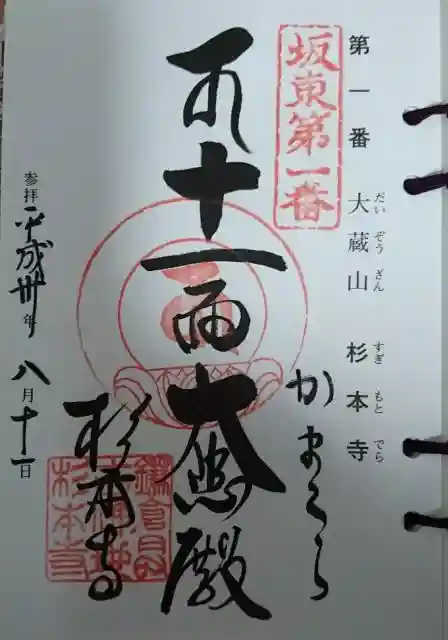 第一番 大蔵山 杉本寺
だいぞうざん すぎもとでら
坂東第一番
かまくら
十一面大悲殿
杉本寺
参拝平成卅年八月十一日